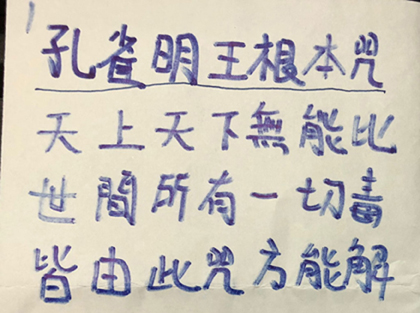 孔雀明王根本咒
天上天下無能比
世間所有一切毒
皆由此咒方能解